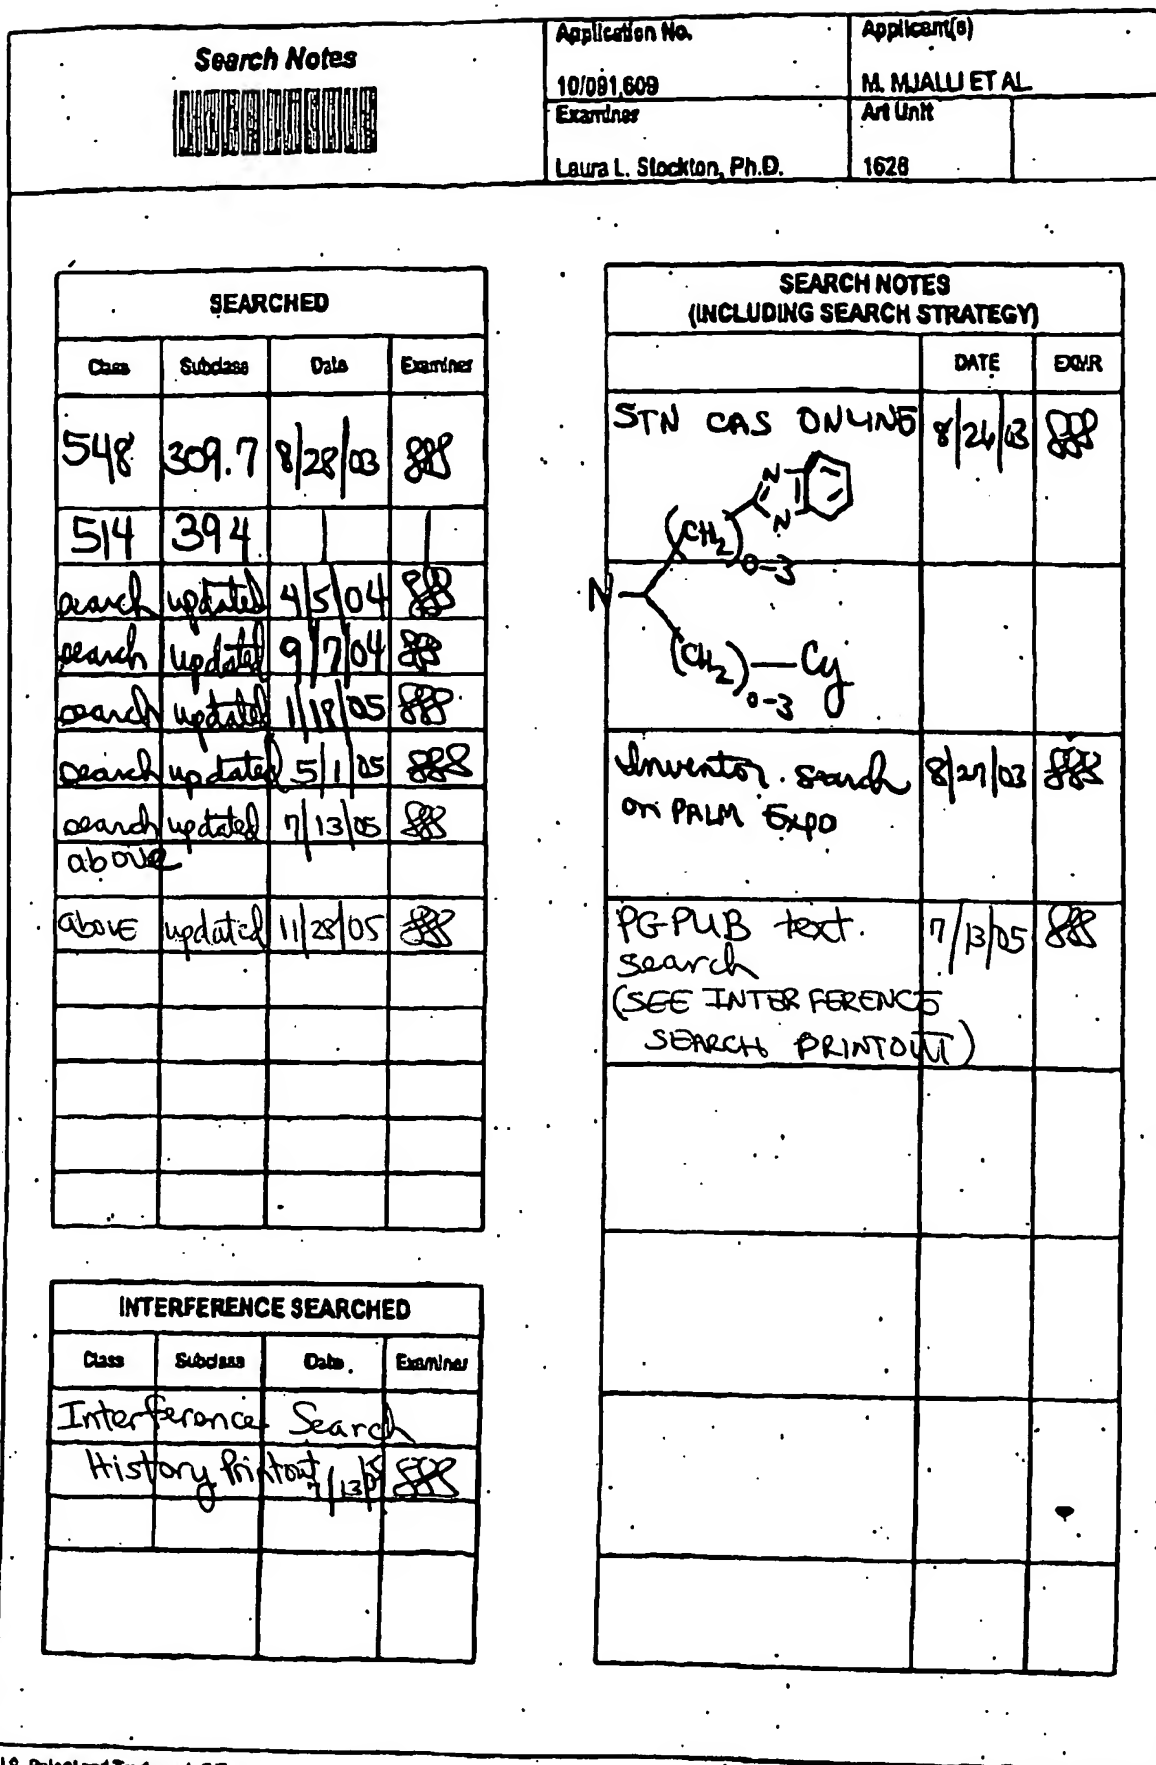 Search Notes
Application No.
10/091,609
Applicant(s)
M. MJALLI ET AL
Examiner
Laura L. Stockton, Ph.D.
Art Unit
1626
SEARCHED
Class Subclass Date Examiner
548 309.7 8/28/03
514 394
search updated 4/5/04
search updated 9/7/04
search updated 1/18/05
search updated 5/1/05
search updated 7/13/05
above
above updated 11/28/05
INTERFERENCE SEARCHED
Class Subclass Date Examiner
Interference Search
History Printout 7/13/05
SEARCH NOTES
(INCLUDING SEARCH STRATEGY)
DATE EXMR
STN CAS ONLINE 8/26/03
N
(CH2)0-3 N
N
(CH2)0-3—Cy
Inventor search 8/27/03
on PALM Expo
PGPUB text 7/13/05
search
(SEE INTERFERENCE
SEARCH PRINTOUT)